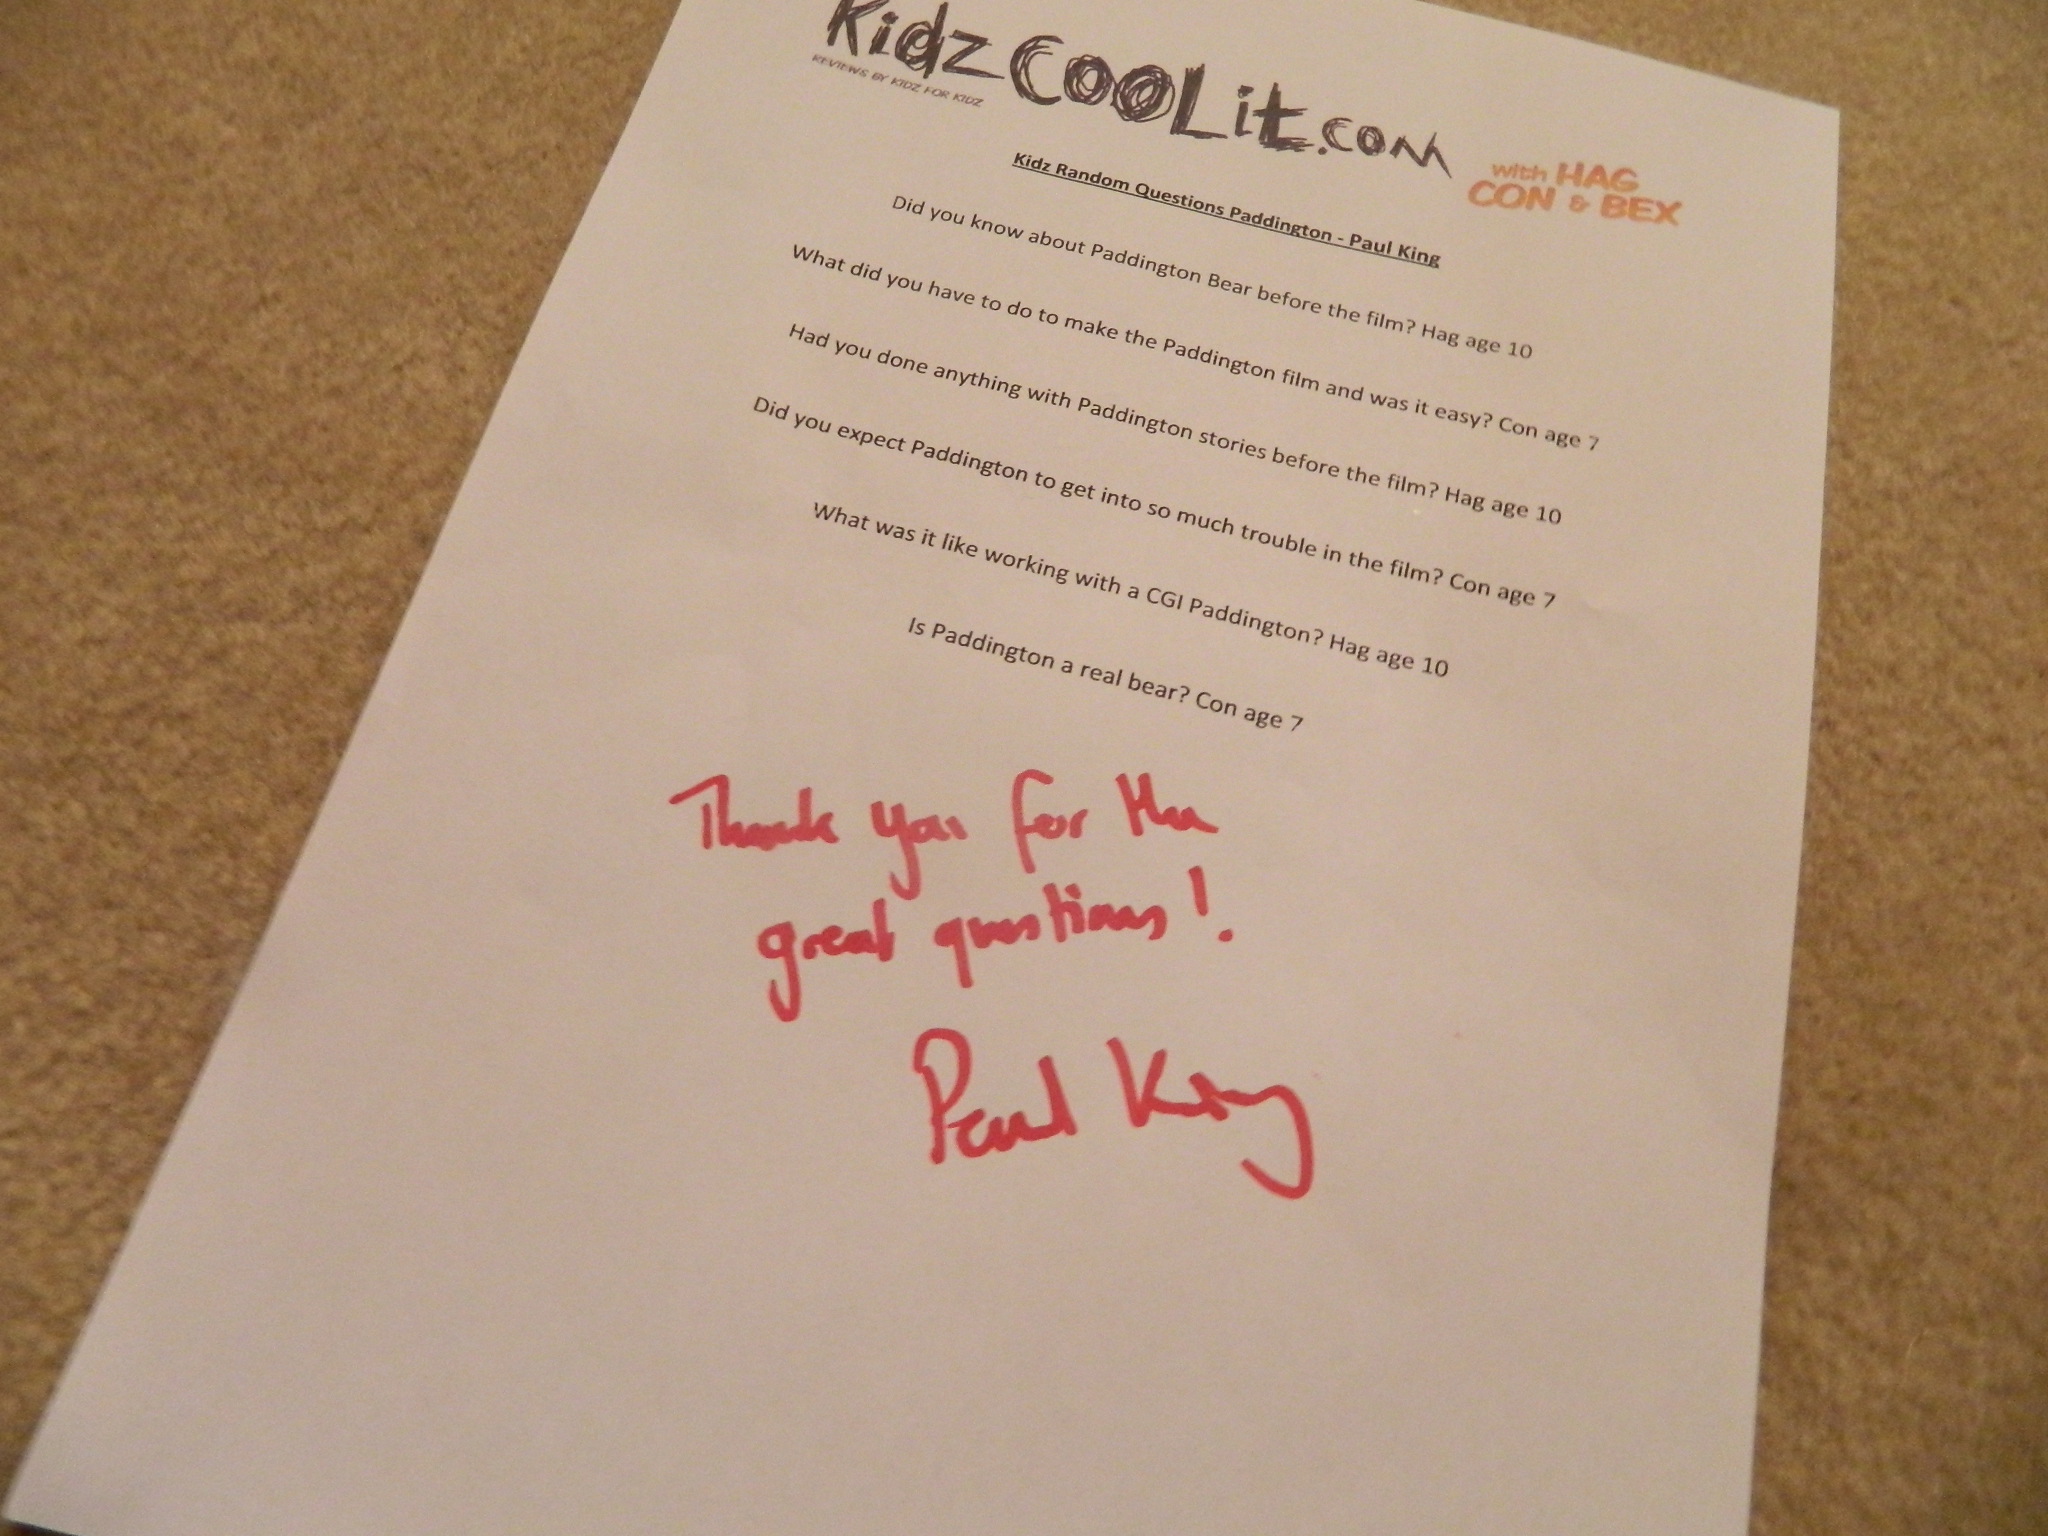 Kidz COOLit.com
REVIEWS BY KIDZ FOR KIDZ
with HAG
CON & BEX
Kidz Random Questions Paddington - Paul King
Did you know about Paddington Bear before the film? Hag age 10
What did you have to do to make the Paddington film and was it easy? Con age 7
Had you done anything with Paddington stories before the film? Hag age 10
Did you expect Paddington to get into so much trouble in the film? Con age 7
What was it like working with a CGI Paddington? Hag age 10
Is Paddington a real bear? Con age 7
Thank you for the
great questions!
Paul King